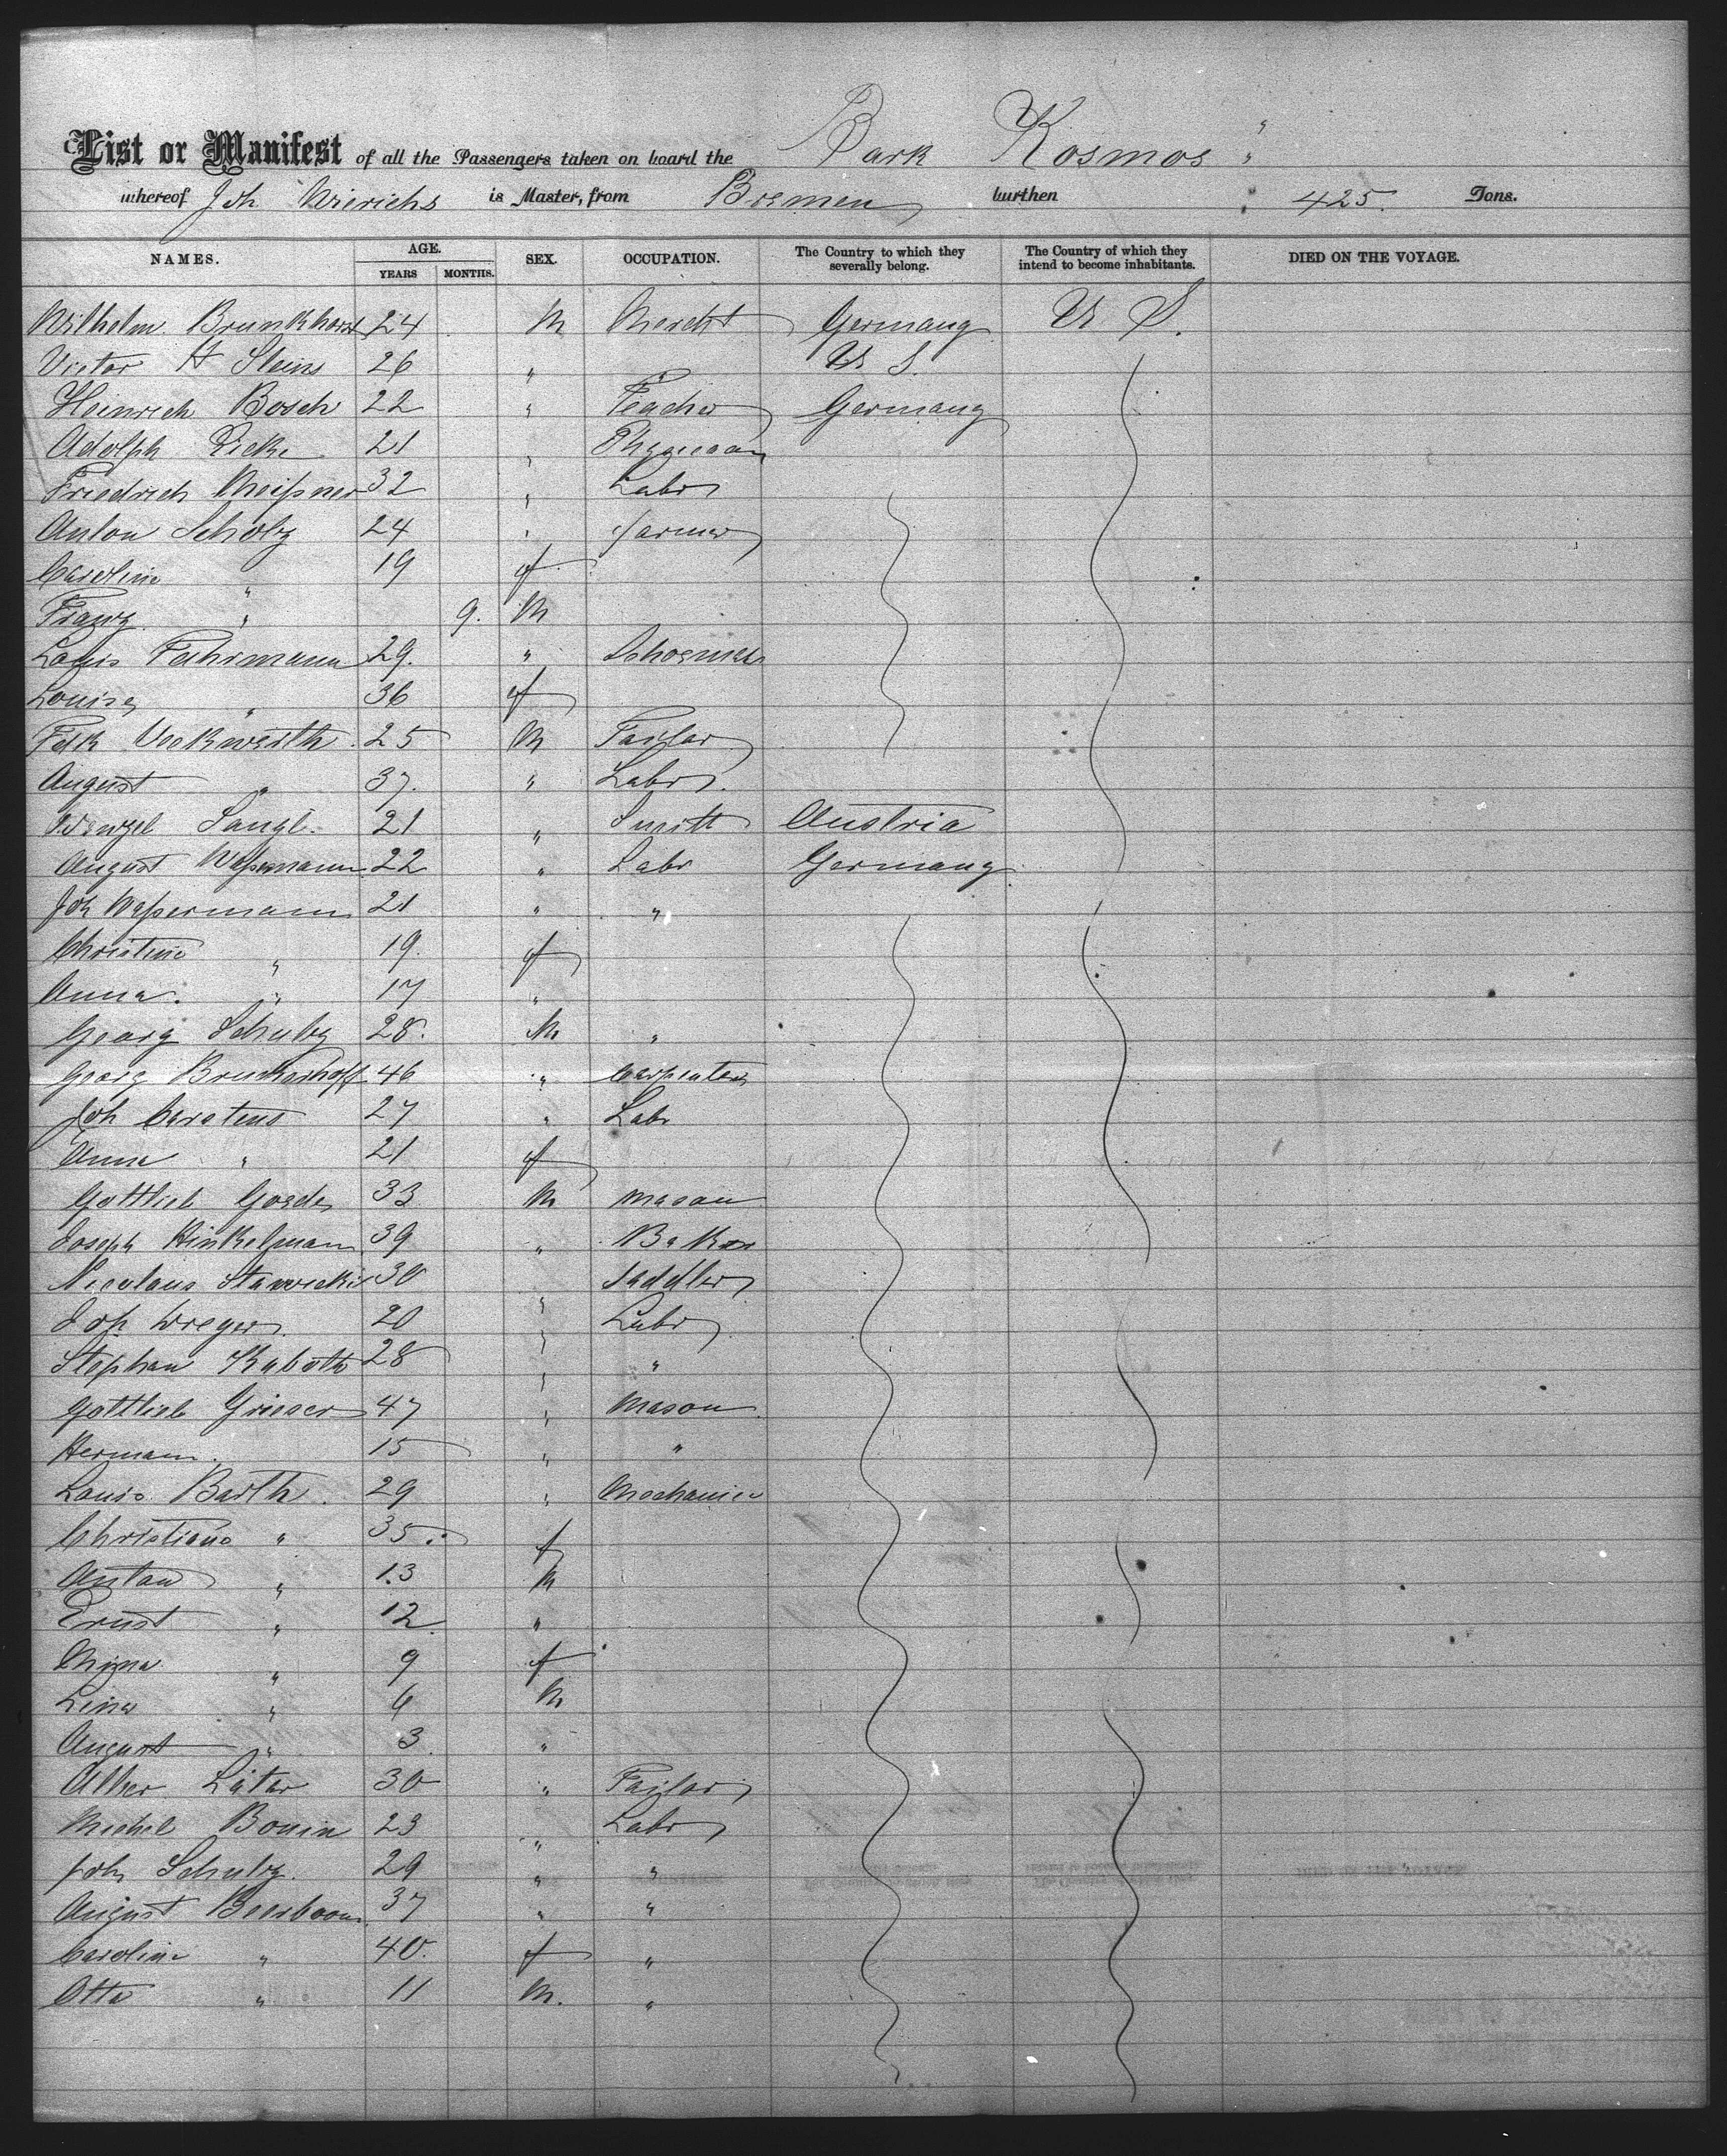 List or Manifest of all the Passengers taken on board the Bark Kosmos "
whereof Joh. Wierichs is Master, from Bremen burthen 425. Tons.
NAMES. AGE. YEARS MONTHS. SEX. OCCUPATION. The Country to which they severally belong. The Country of which they intend to become inhabitants. DIED ON THE VOYAGE.
Wilhelm Brunkhorst 24 M Mercht Germany U S.
Victor H Steins 26 " U S.
Heinrich Bosch 22 " Teacher Germany
Adolph 21 " Physician
Friedrich Meißner 32 " Labr
Anton Scholz 24 " farmer
Caroline " 19 f
Franz " 9. M
Louis Fuhrmann 29. " Schoemak
Louise " 36 f
Fdk Vockwerth 25 M Tailor
August " 37. " Labr.
Wenzel 21 " Smitt Austria
August Waßermann 22 " Labr Germany
Joh Waßermann 21 " "
Christine " 19. f
Anna. " 17 "
Georg Schulz 28. M "
Georg Bruckerhoff 46 " Carpenter
Joh Carstens 27 " Labr
Anna " 21 f
Gottlieb Goede 33 M mason
Joseph Hinkelmann 39 " Baker
Nicolaus Stawicki 30 " Saddler
Jos. Dreger 20 " Labr
Stephan Kuboth 28 " "
Gottlieb Grieser 47 " Mason
Hermann. 15 " "
Louis Barth. 29 " Mechanic
Christiane " 35. f
Anton " 13 M
Ernst " 12. "
Mina " 9 f
Lina " 6 M
August " 3. "
Alber Läter 30 " Tailor
Michel Bonin 23 " Labr
Joh Schulz. 29 " "
August Beerboom 37 " "
Caroline " 40. f "
Otto " 11 M. "